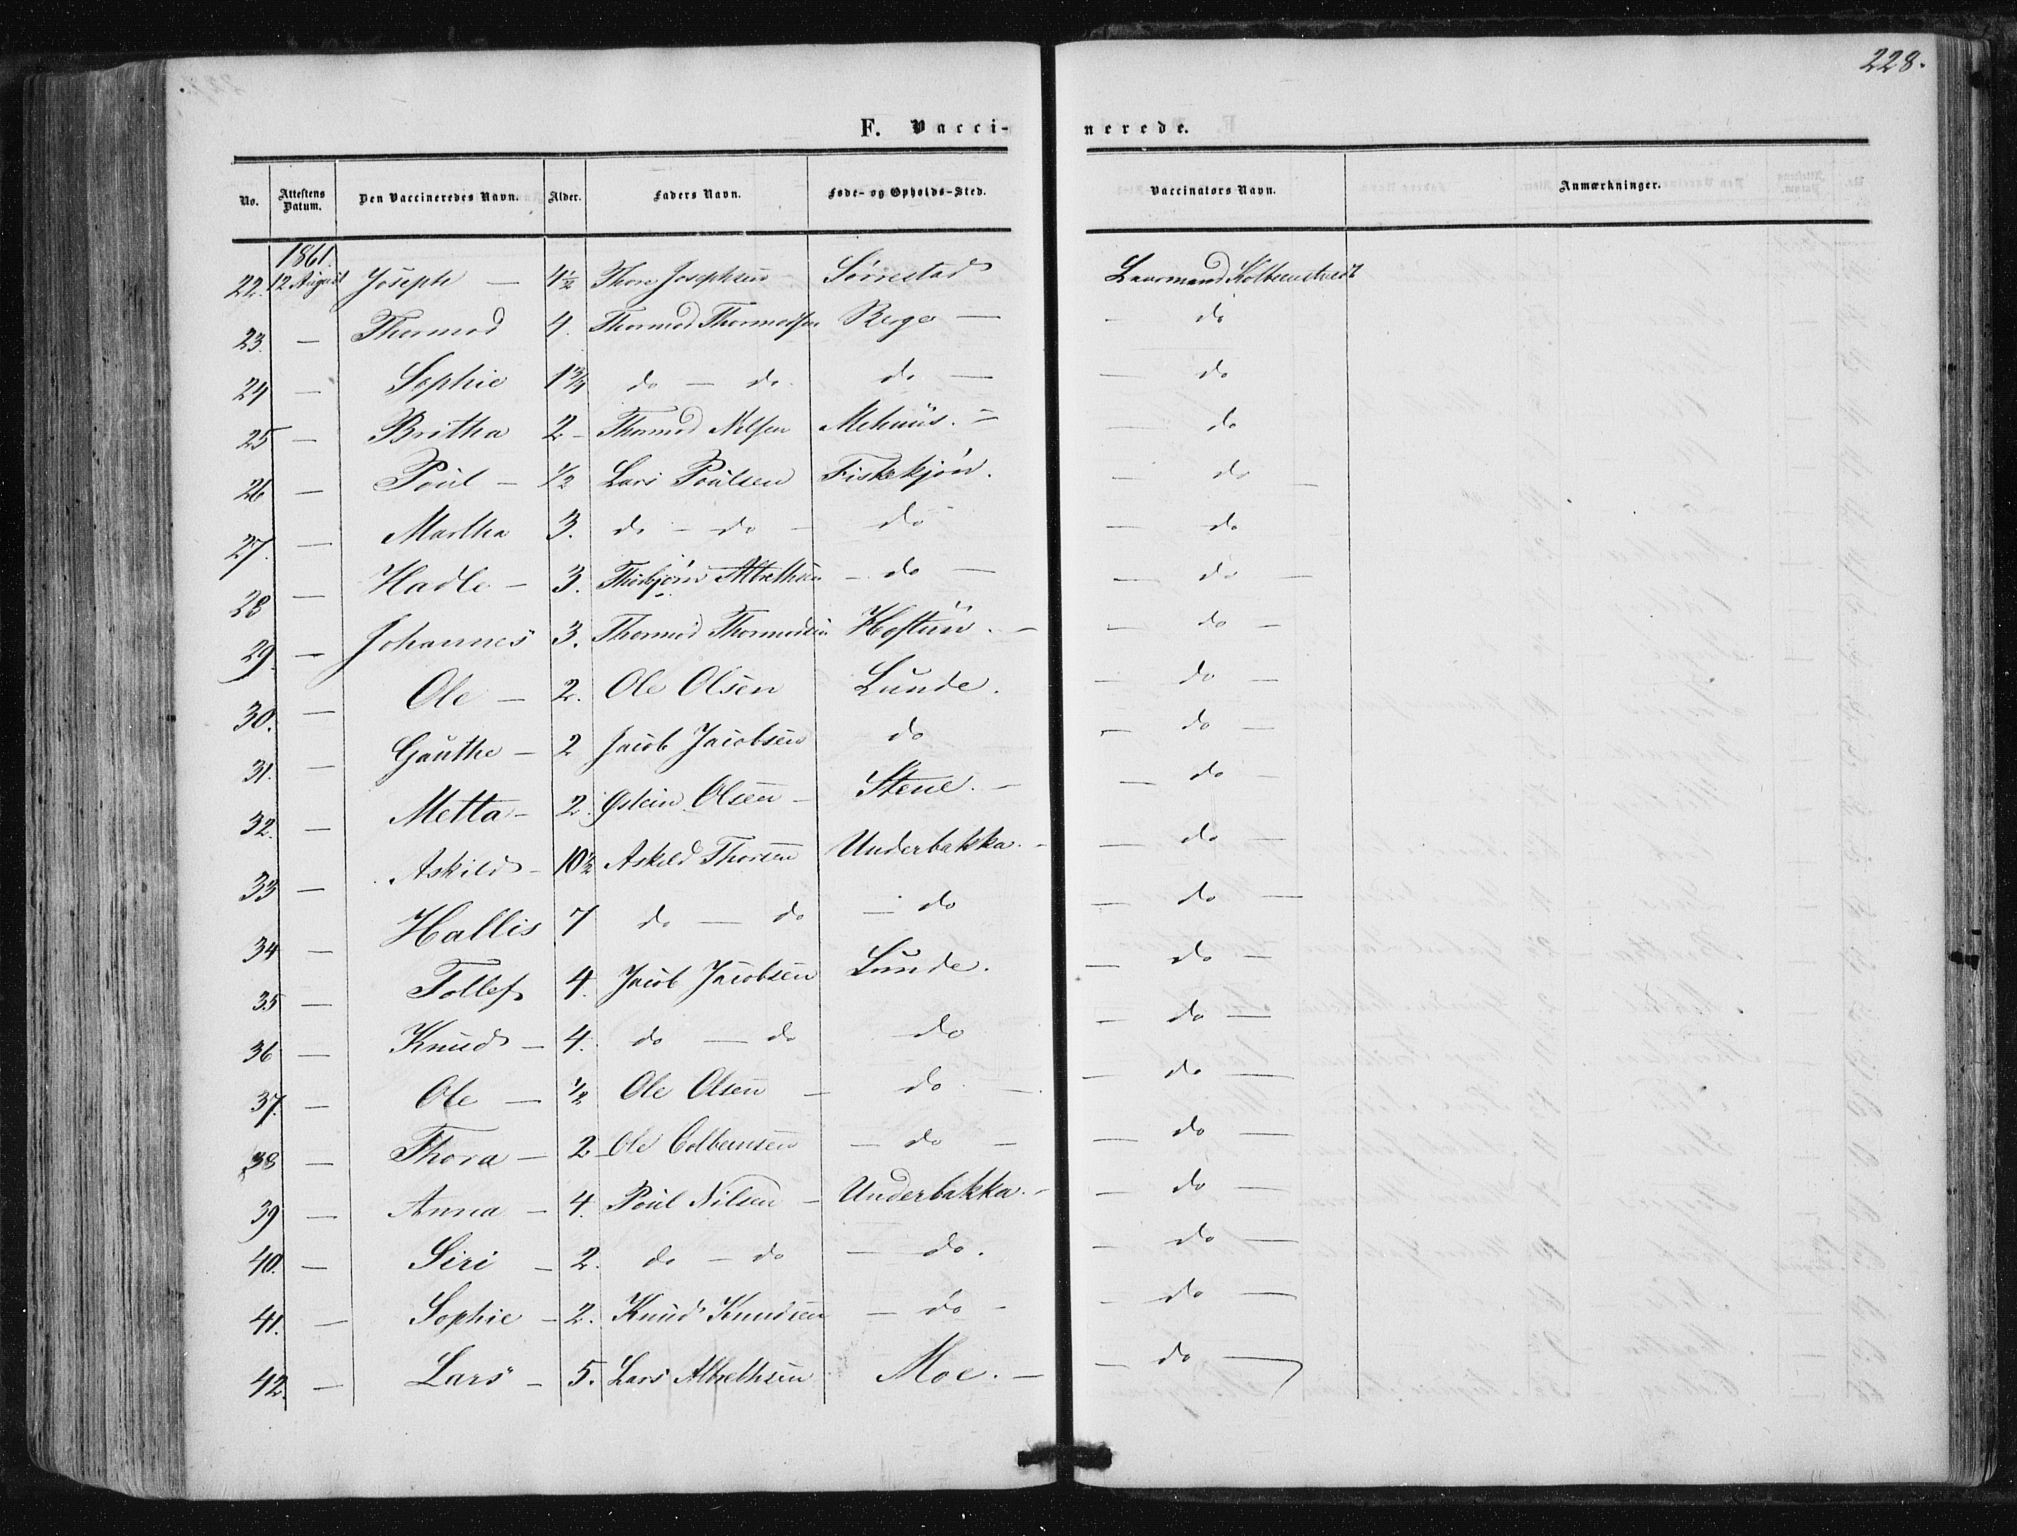 228.
F. Vacci-nerede.
No. | Attestens Datum. | Den Vaccineredes Navn. | Alder. | Faders Navn. | Føde- og Opholds-Sted. | Vaccinators Navn. | Anmærkninger.
1861.
22. | 12 August | Joseph — | 4½ | Thore Josephsen — | Sørrestad | Lensmand Kolbenstvedt
23. | — | Thormod | 4. | Thormod Thormodsen | Berge — | — do
24 | — | Sophie | 1¾ | do — do. | do — | — do
25 | — | Britha | 2 — | Thormod Nilsen | Mehuus. — | — do
26 | — | Poul — | ½ | Lars Poulsen | Fiskekjøn. | — do —
27. | — | Martha | 3. | do — do — | do | — do
28 | — | Hadle — | 3. | Thorbjørn Albrethsen | — do — | — do —
29. | — | Johannes | 3. | Thormod Thormodsen | Hoftun. — | — do —
30. | — | Ole — | 2. | Ole Olsen | Lunde. | — do —
31. | — | Gauthe — | 2 | Jacob Jacobsen | do | — do —
32. | — | Metta — | 2. | Østein Olsen — | Stene. — | — do —
33 | — | Askild — | 10½ | Askild Thorsen | Underbakka. — | — do —
34 | — | Hallis | 7 | do — do | — do | — do —
35 | — | Tollef | 4. | Jacob Jacobsen | Lunde. | — do —
36 | — | Knud — | 4. | do — do | do | — do —
37. | — | Ole — | ½ | Ole Olsen — | do — | — do —
38 | — | Thora — | 2 — | Ole Colbensen | — do — | — do —
39 | — | Anna — | 4. | Poul Nilsen — | Underbakka. — | — do —
40. | — | Siri — | 2. | do — do | — do. | — do —
41. | — | Sophie — | 2. | Knud Knudsen | — do — | — do —
42. | — | Lars — | 5. | Lars Albrethsen | Moe. — | — do —